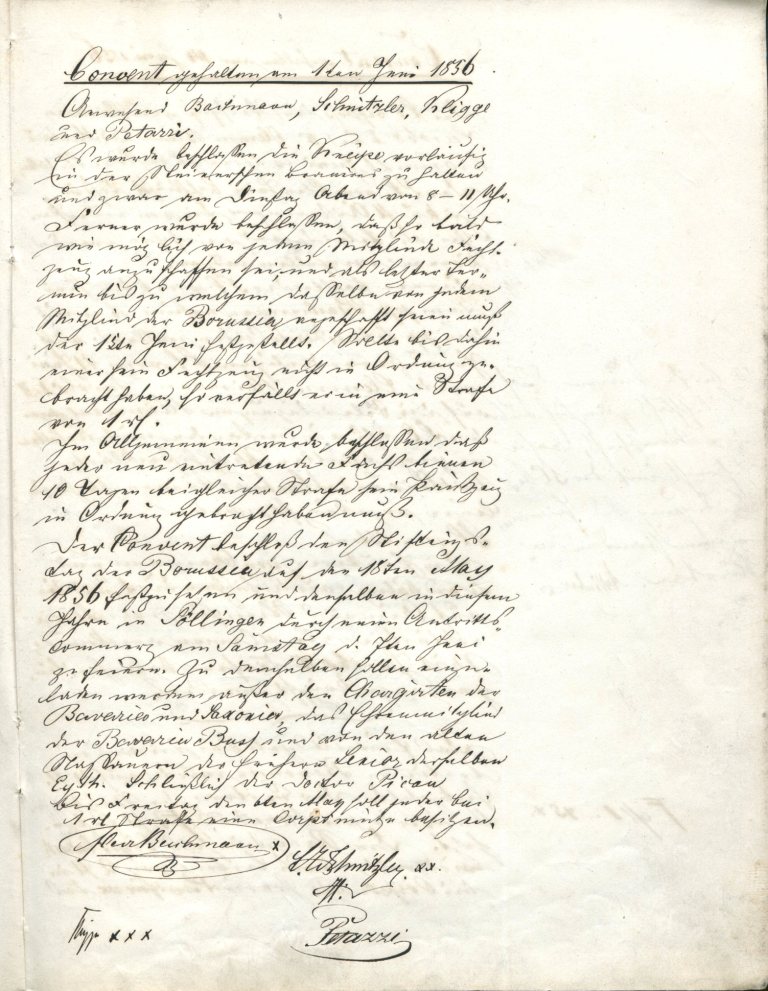 Convent gehalten am 1ten Juni 1856
Anwesend Bachmann, Schnitzler, Kligge
und Petazzi.
Es wurde beschlossen die Kneipe vorläufig
in der zu halten
und zwar am Dinstag Abend von 8 – 11 Uhr.
Ferner wurde beschlossen, daß so bald
wie möglich von jedem Mitgliede Fecht-
zeug anzuschaffen sei, und als letzter Ter-
min bis zu welchem dasselbe von jedem
Mitglied der Borussia angeschafft sein muß
der 15te Juni festgestellt. Sollte bis dahin
einer sein Fechtzeug nicht in Ordnung ge-
bracht haben, so verfällt er in eine Strafe
von 1 rf.
Im Allgemeinen wurde beschlossen daß
jeder neu eintretende Fuchs binnen
10 Tagen bei gleicher Strafe sein Paukzeug
in Ordnung gebracht haben muß.
Der Convent beschloß den Stiftungs-
tag der Borussia auf den 18ten May
1856 festzusetzen und denselben in diesem
Jahre in Söllingen durch einen Antritts-
commerz am Samstag d. 7ten Juni
zu feiern. Zu demselben sollen einge-
laden werden außer den Chargirten der
Bavaria und Saxonia, das Ehrenmitglied
der Bavaria Buss und von den alten
Nassauern der frühere Senior derselben
Eyth. Schließlich der Doctor Picau
Bis Freitag den 6ten May soll jeder bei
1 rf Strafe eine Corpsmütze besitzen.
Bachmann x
Schnitzler xx.
Petazzi
Kligge x x x